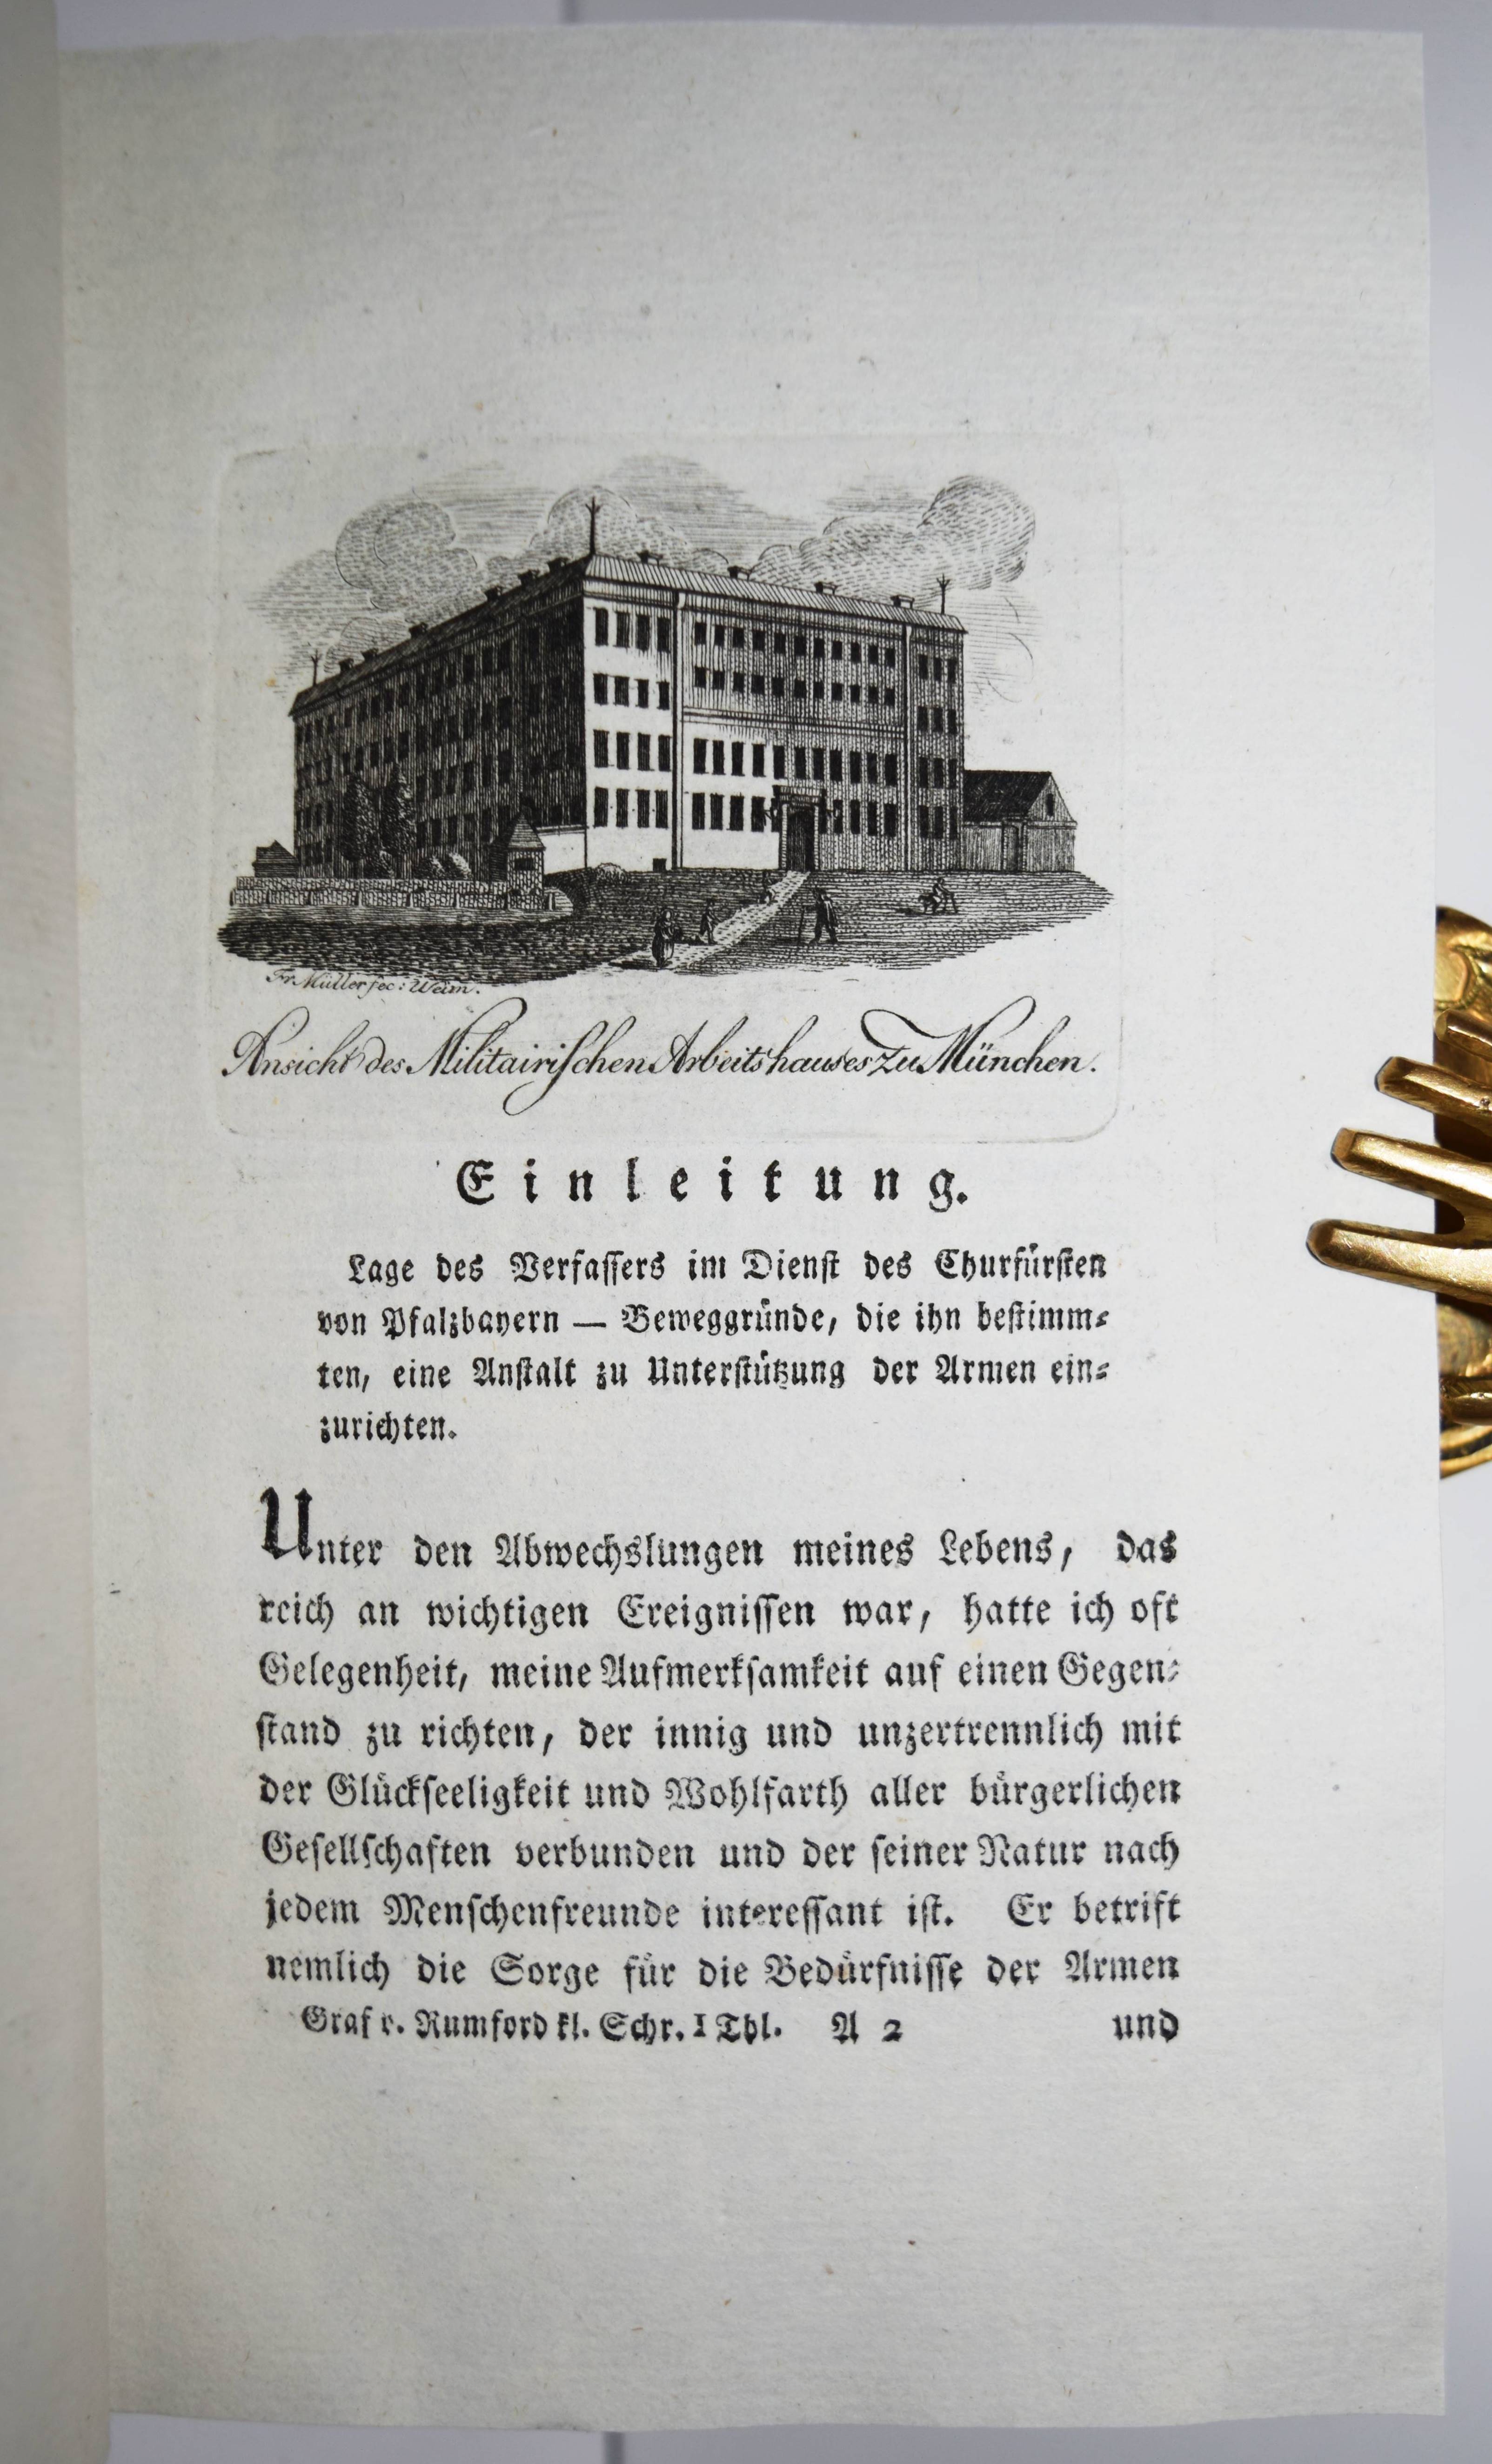 Fr. Müller fec: Weim.
Ansicht des Militairiſchen Arbeitshauses zu München.
Einleitung.
Lage des Verfaſſers im Dienſt des Churfürſten
von Pfalzbayern — Beweggründe, die ihn beſtimm⸗
ten, eine Anſtalt zu Unterſtützung der Armen ein⸗
zurichten.
Unter den Abwechslungen meines Lebens, das
reich an wichtigen Ereigniſſen war, hatte ich oft
Gelegenheit, meine Aufmerkſamkeit auf einen Gegen⸗
ſtand zu richten, der innig und unzertrennlich mit
der Glückſeeligkeit und Wohlfarth aller bürgerlichen
Geſellſchaften verbunden und der ſeiner Natur nach
jedem Menſchenfreunde intereſſant iſt. Er betrift
nemlich die Sorge für die Bedürfniſſe der Armen
Graf v. Rumford kl. Schr. I Thl. A 2 und